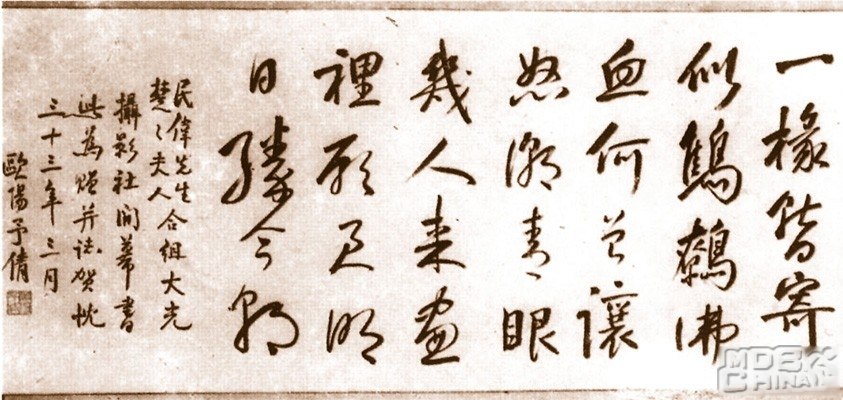 一椽暫寄
似鷦鷯沸
血何曾讓
怒潮青眼
幾人來畫
裡願見明
日勝今朝
民偉先生
楚〻夫人合組大光
攝影社開幕書
此為贈并誌賀忱
三十三年三月
歐陽予倩
CHINA